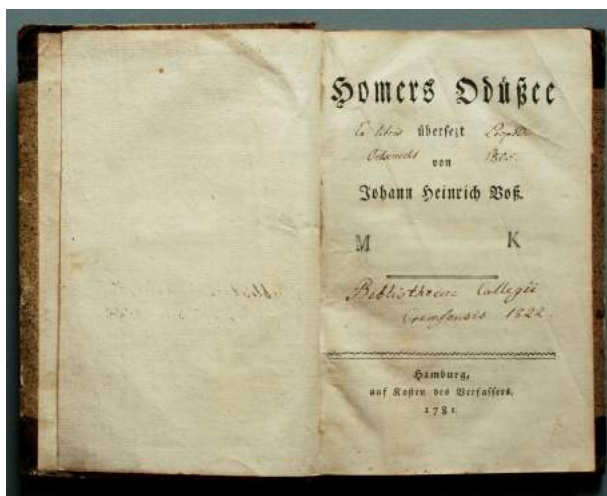 Homers Odüßee
Ex libris übersezt
von 1805.
Johann Heinrich Voß.
M K
Bibliothecae Collegii
Cremsensis 1822.
Hamburg,
auf Kosten des Verfassers.
1781